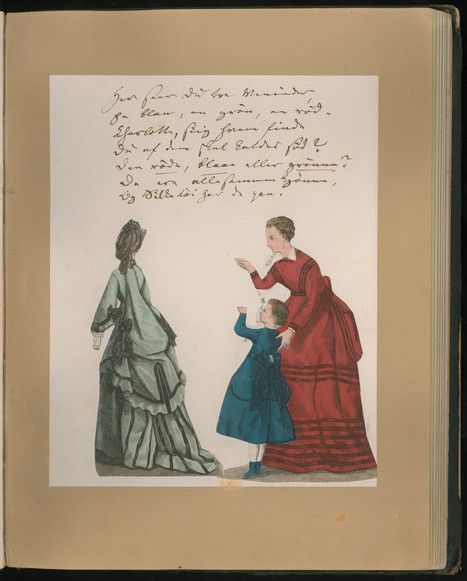 Her seer Du tre Veninder,
en blaa, en grøn, en rød.
Charlotte, siig hvem finder
Du af dem skal kaldes sød?
Den røde, blaae eller grønne?
De ere allesammen kjønne,
Og Silketøi har de paa.